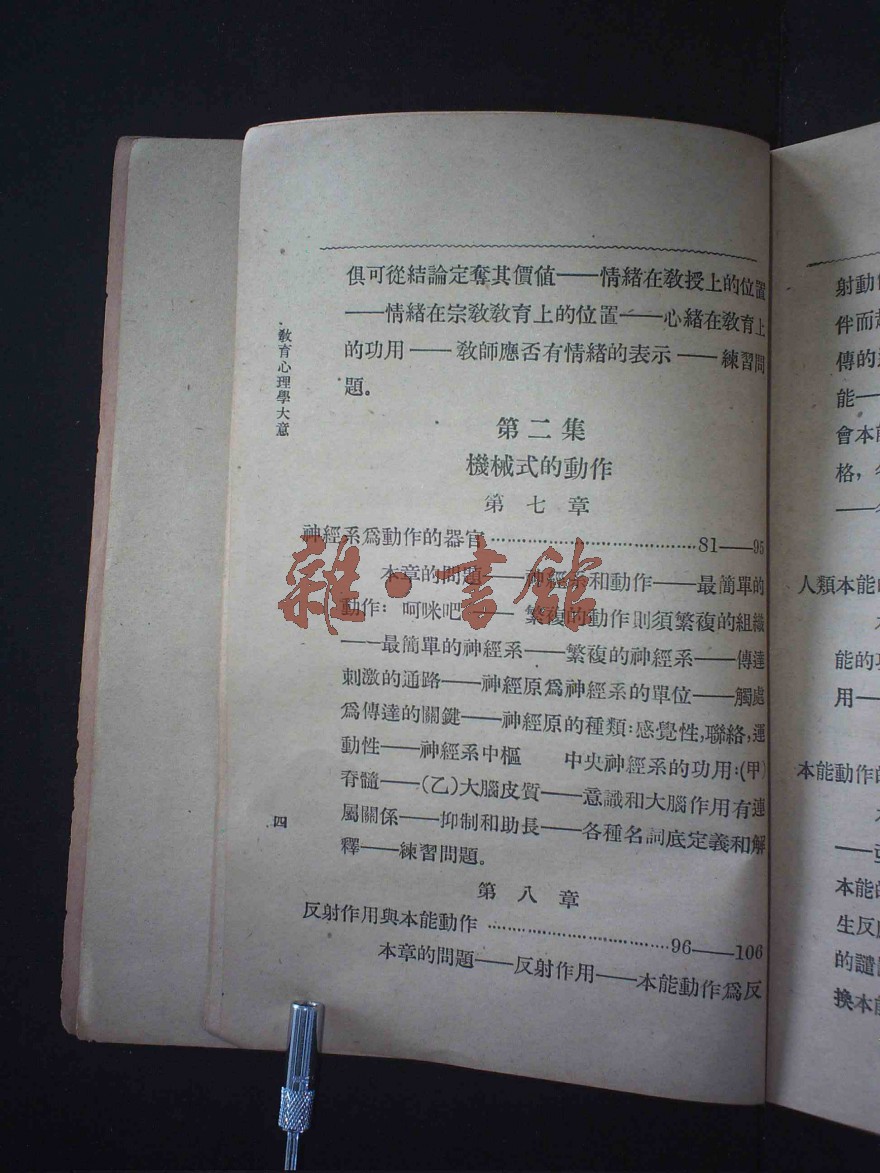 俱可從結論定奪其價値——情緒在敎授上的位置
——情緒在宗敎敎育上的位置——心緒在敎育上
的功用——敎師應否有情緒的表示——練習問
題。
敎育心理學大意
第二集
機械式的動作
第七章
神經系爲動作的器官……………………………81——95
本章的問題——神經系和動作——最簡單的
動作：呵咪吧——繁複的動作則須繁複的組織
——最簡單的神經系——繁複的神經系——傳達
刺激的通路——神經原爲神經系的單位——觸處
爲傳達的關鍵——神經原的種類：感覺性，聯絡，運
動性——神經系中樞　中央神經系的功用：(甲)
脊髓——(乙)大腦皮質——意識和大腦作用有連
屬關係——抑制和助長——各種名詞底定義和解
釋——練習問題。
四
第八章
反射作用與本能動作……………………………96——106
本章的問題——反射作用——本能動作爲反
雜·書館
射動
伴而
傳的
能——
會本
格，
——
人類本能
能的
用——
本能動作
——
本能
生反
的譴
換本